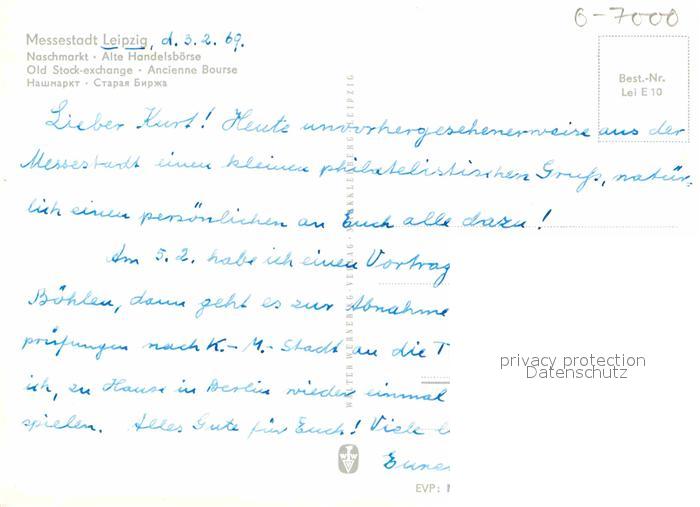 6-7000
Messestadt Leipzig, d. 3. 2. 69.
Naschmarkt · Alte Handelsbörse
Old Stock-exchange · Ancienne Bourse
Нашмаркт · Старая Биржа
Best.-Nr.
Lei E 10
Lieber Kurt! Heute unvorhergesehenerweise aus der
Messestadt einen kleinen philatelistischen Gruß, natür-
lich einen persönlichen an Euch alle dazu!
Am 5. 2. habe ich einen Vortrag
Böhlen, dann geht es zur Abnahme
prüfungen nach K.-M.-Stadt an die T
ich, zu Hause in Berlin wieder einmal
spielen. Alles Gute für Euch! Viele
WALTER WERNERBERG-VERLAG
LEIPZIG
EVP:
privacy protection
Datenschutz